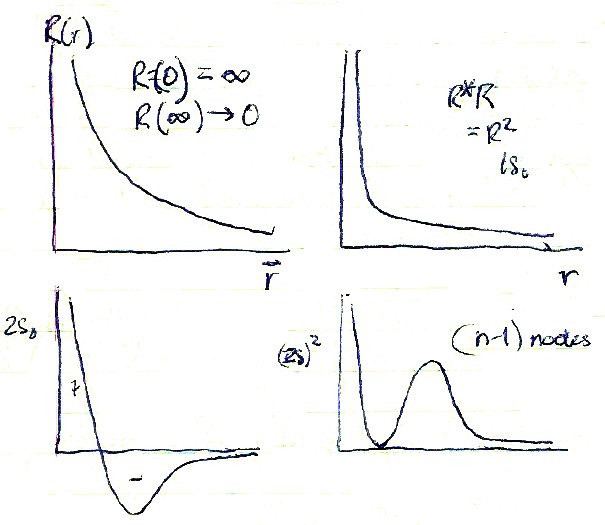 R(r)
R(0) = ∞
R(∞) → 0
r
R*R
= R²
1s₀
r
2s₀
+
−
(2s)²
(n-1) nodes